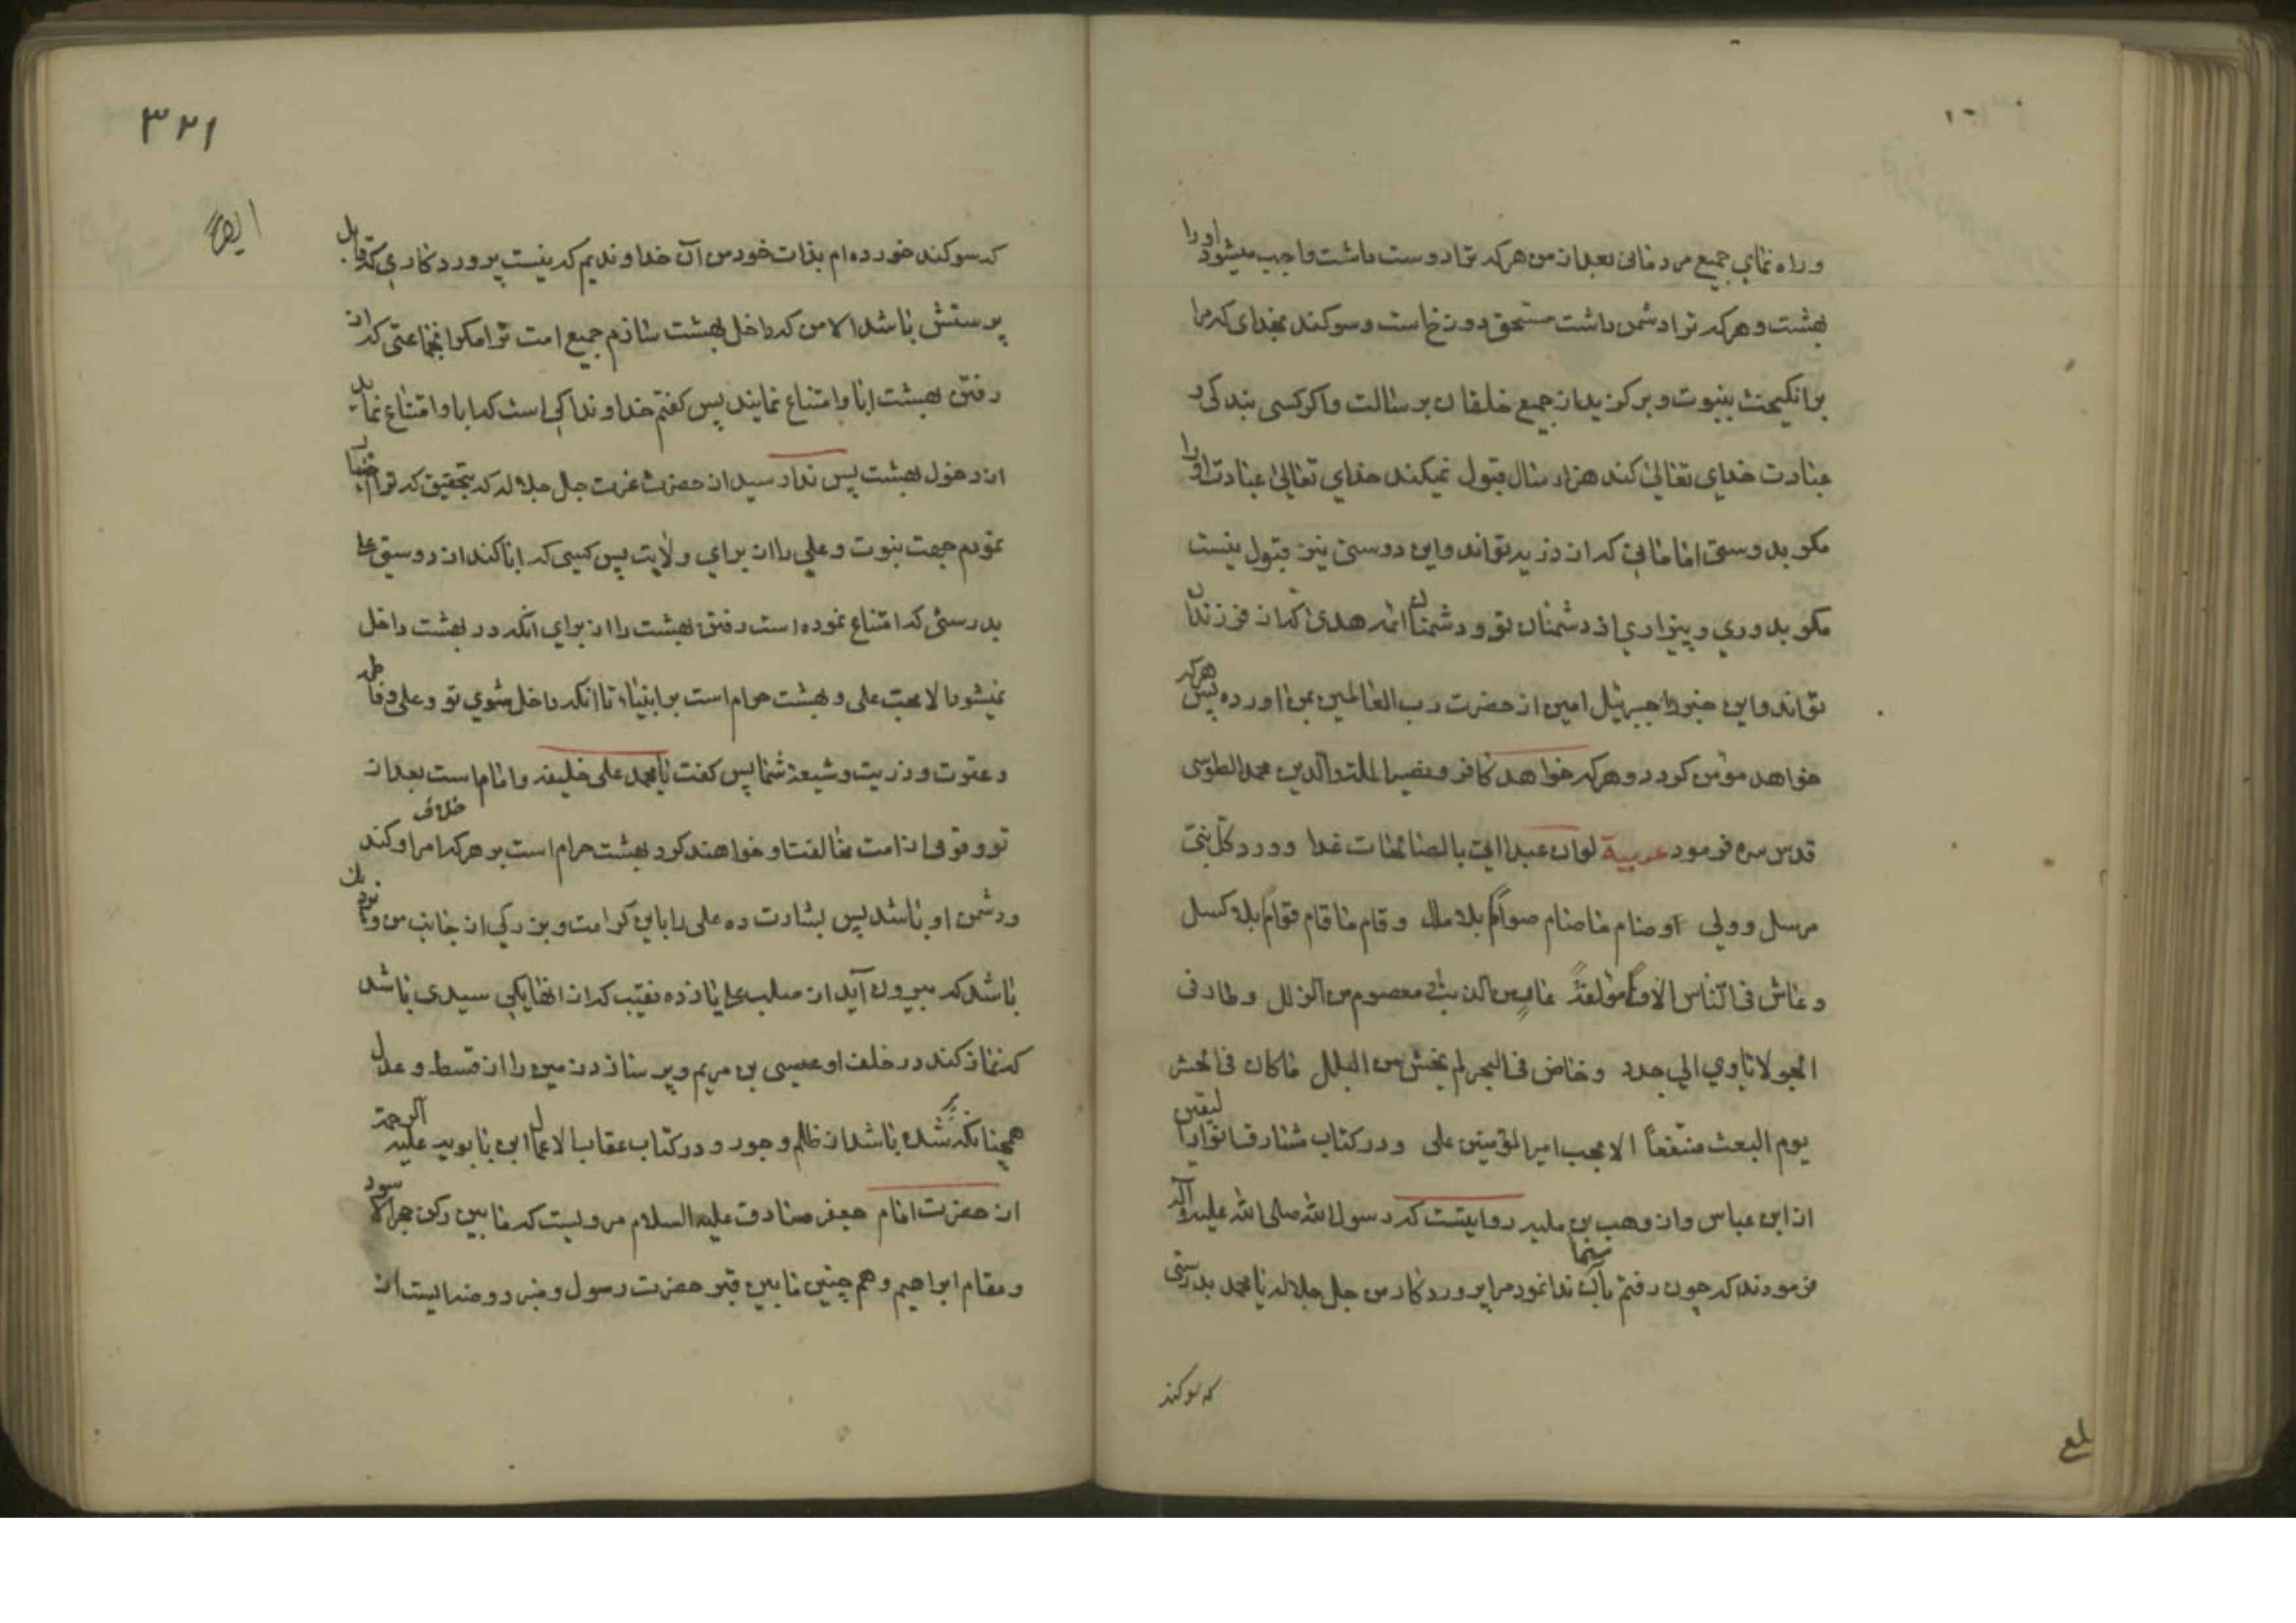 و راه نمای جمیع مردمانی بعد از من هر که ترا دوست داشت واجب میشود او را
بهشت و هر که ترا دشمن داشت مستحق دوزخ است و سوکند بخدای که مرا
برانکیخت بنبوت و برکزید از جمیع خلقان برسالت و اکر کسی بندکی و
عبادت خدای تعالی کند هزار سال قبول نمیکند خدای تعالی عبادت او را
مکر بدوستی امامانی که از ذریه تواند و این دوستی نیز قبول نیست
مکر بدوری و بیزاری از دشمنان تو و دشمنان ائمه هدی که از فرزندان
تواند و این خبر را جبرئیل امین از حضرت رب العالمین بمن اورده پس هر که
خواهد مؤمن کردد و هر که خواهد کافر و نصیر الملة والدین محمد الطوسی
قدس سره فرمود عربیة لو ان عبدا اتی بالصالحات غدا و ود کل نبی
مرسل و ولی او صام ما صام صوام بلا ملل و قام ما قام قوام بلا کسل
و عاش فی الناس الافا مؤلفة عار من الذنب معصوم من الزلل و طار فی
الجو لا یاوی الی جدد و خاض فی البحر لم یخش من البلل ما کان فی الحشر
یوم البعث منتفعا الا بحب امیر المؤمنین علی و در کتاب مشارق انوار الیقین
از ابن عباس و از وهب بن ملبه روایتست که رسول الله صلی الله علیه و آله
فرمودند که چون رفتم بآسمان ندا نمود مرا پروردکار من جل جلاله یا محمد بدرستی
که سوکند
۳۲۱
که سوکند خورده ام بذات خود من آن خداوندیم که نیست پروردکاری که قابل
پرستش باشد الا من که داخل بهشت سازم جمیع امت ترا مکر انجماعتی که از
رفتن بهشت ابا و امتناع نمایند پس کفتم خداوندا کی است که ابا و امتناع نماید
از دخول بهشت پس ندا رسید از حضرت عزت جل جلاله که بتحقیق که ترا اختیار
نمودم جهت نبوت و علی را از برای ولایت پس کسی که ابا کند از دوستی علی
بدرستی که امتناع نموده است رفتن بهشت را از برای انکه در بهشت داخل
نمیشود الا محب علی و بهشت حرام است بر انبیاء تا انکه داخل شوی تو و علی و فاطمه
و عترت و ذریت و شیعه شما پس کفت یا محمد علی خلیفه و امام است بعد از
تو و قومی از امت مخالفت او خواهند کرد بهشت حرام است بر هر که خلاف امر او کند
و دشمن او باشد پس بشارت ده علی را باین کرامت و بزرکی از جانب من و زود
باشد که بیرون آید از صلب علی یازده نقیب که از انها یکی سیدی باشد
که نماز کند در خلف او عیسی بن مریم و پر سازد زمین را از قسط و عدل
همچنانکه پر شده باشد از ظلم و جور و در کتاب عقاب الاعمال ابن بابویه علیه الرحمة
از حضرت امام جعفر صادق علیه السلام مرویست که ما بین رکن حجر الاسود
و مقام ابراهیم و هم چنین ما بین قبر حضرت رسول و منبر روضه ایست از